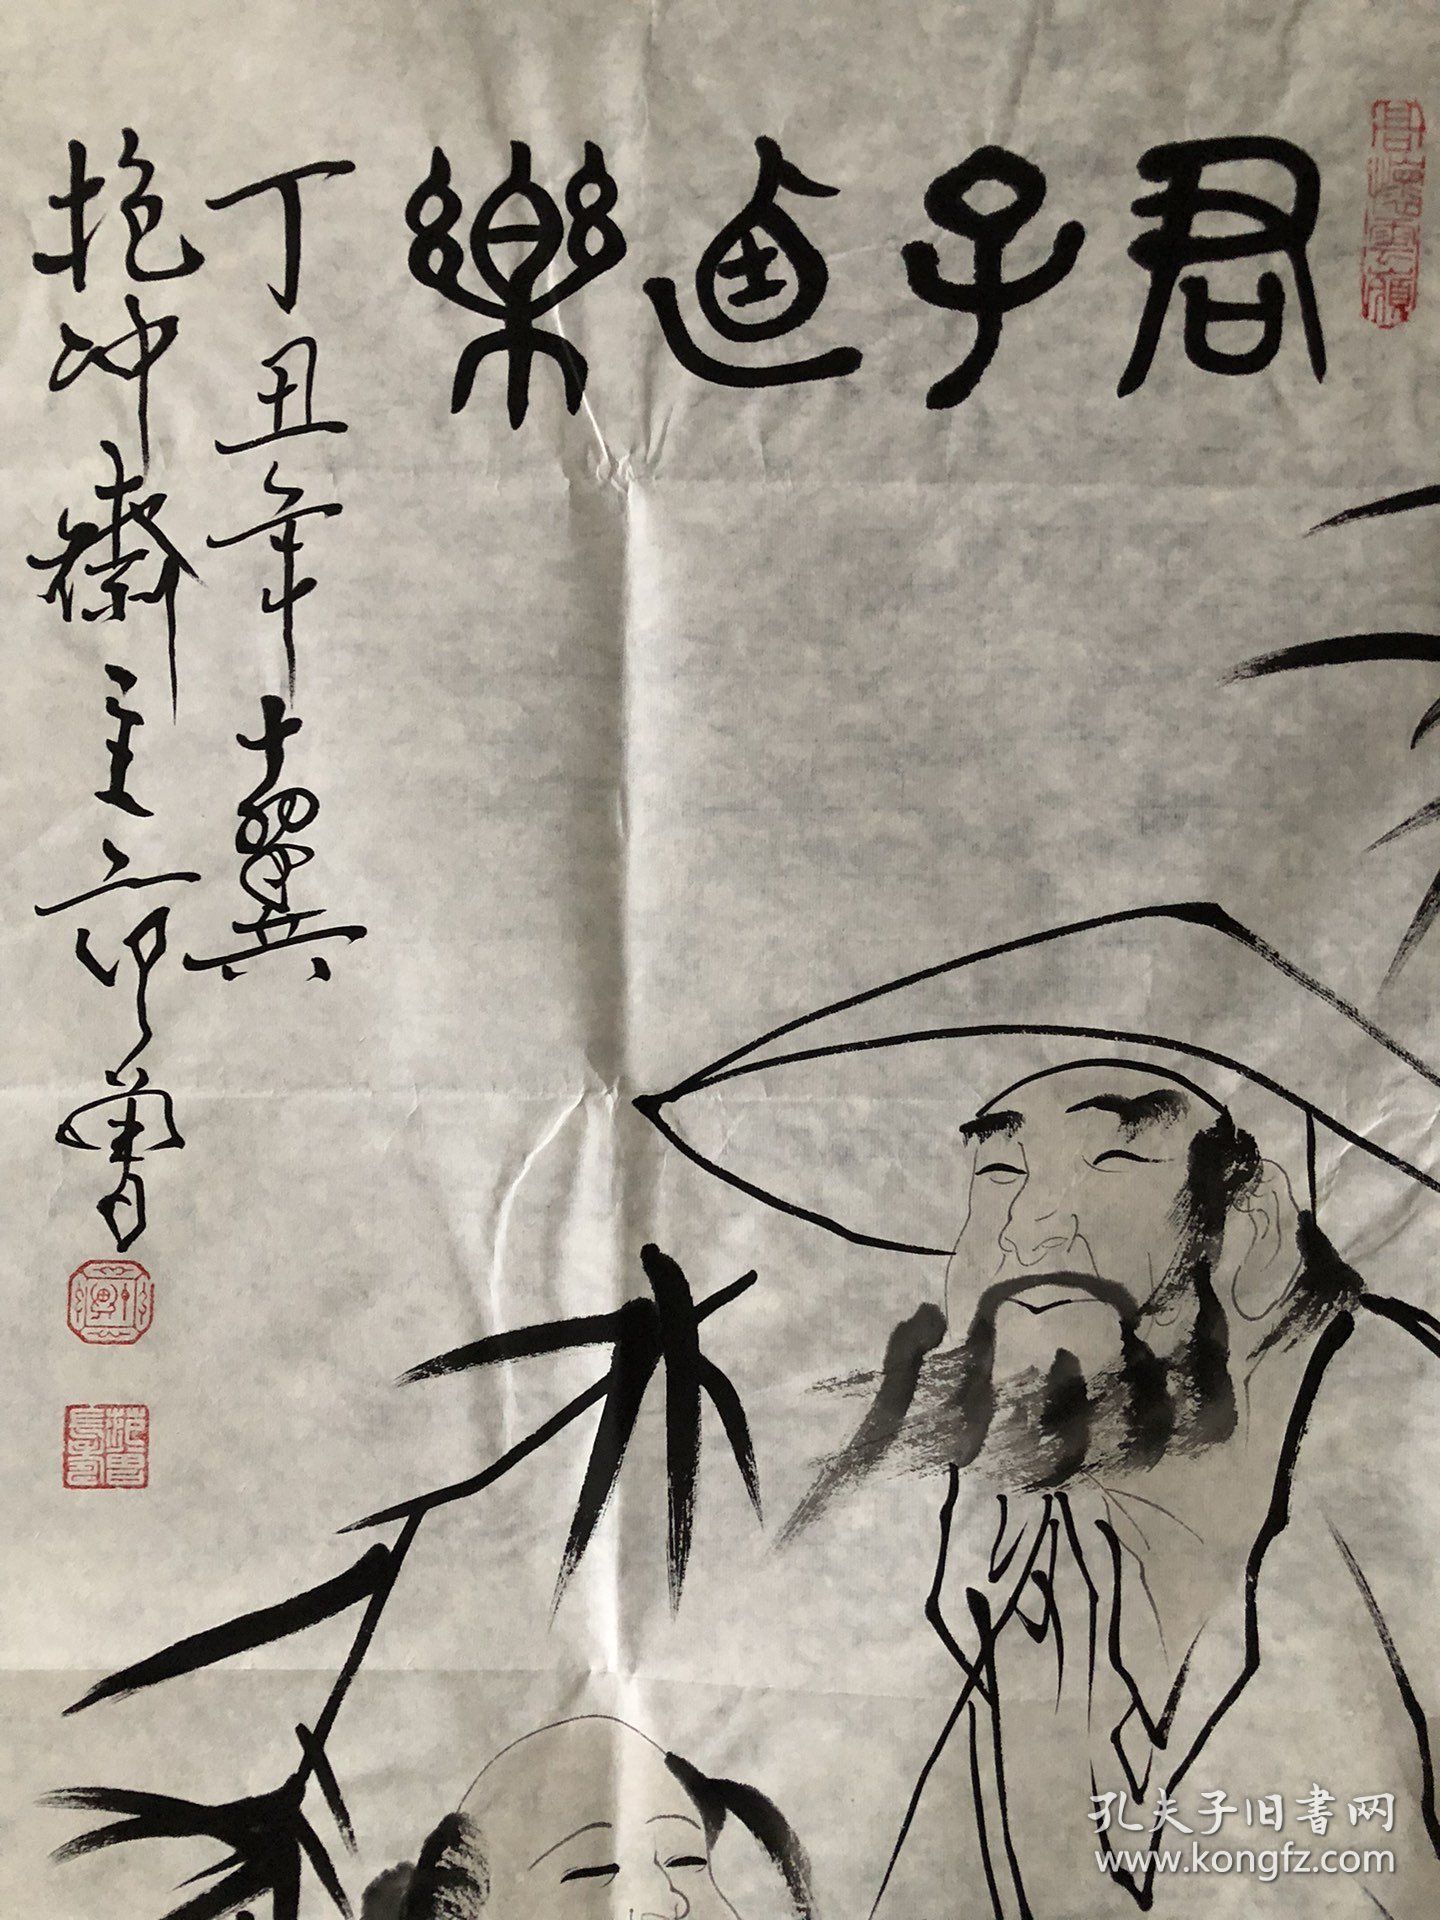 君子逌樂
丁丑年十翼
抱冲齋主范曾
孔夫子旧書网
www.kongfz.com